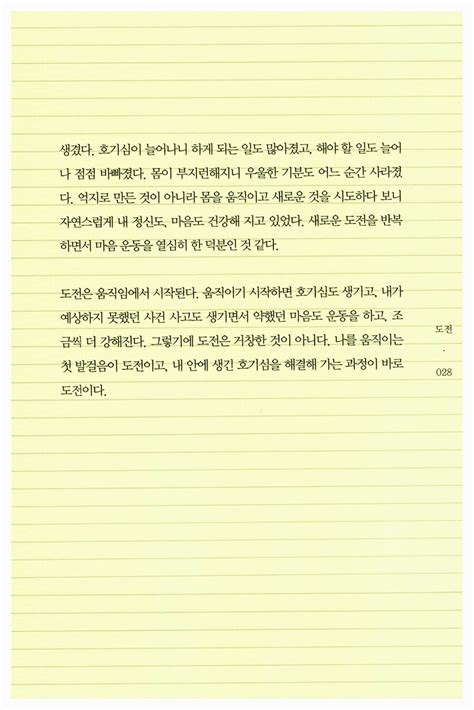 생겼다. 호기심이 늘어나니 하게 되는 일도 많아졌고, 해야 할 일도 늘어
나 점점 바빠졌다. 몸이 부지런해지니 우울한 기분도 어느 순간 사라졌
다. 억지로 만든 것이 아니라 몸을 움직이고 새로운 것을 시도하다 보니
자연스럽게 내 정신도, 마음도 건강해 지고 있었다. 새로운 도전을 반복
하면서 마음 운동을 열심히 한 덕분인 것 같다.
도전은 움직임에서 시작된다. 움직이기 시작하면 호기심도 생기고, 내가
예상하지 못했던 사건 사고도 생기면서 약했던 마음도 운동을 하고, 조
금씩 더 강해진다. 그렇기에 도전은 거창한 것이 아니다. 나를 움직이는
첫 발걸음이 도전이고, 내 안에 생긴 호기심을 해결해 가는 과정이 바로
도전이다.
도전
·
028